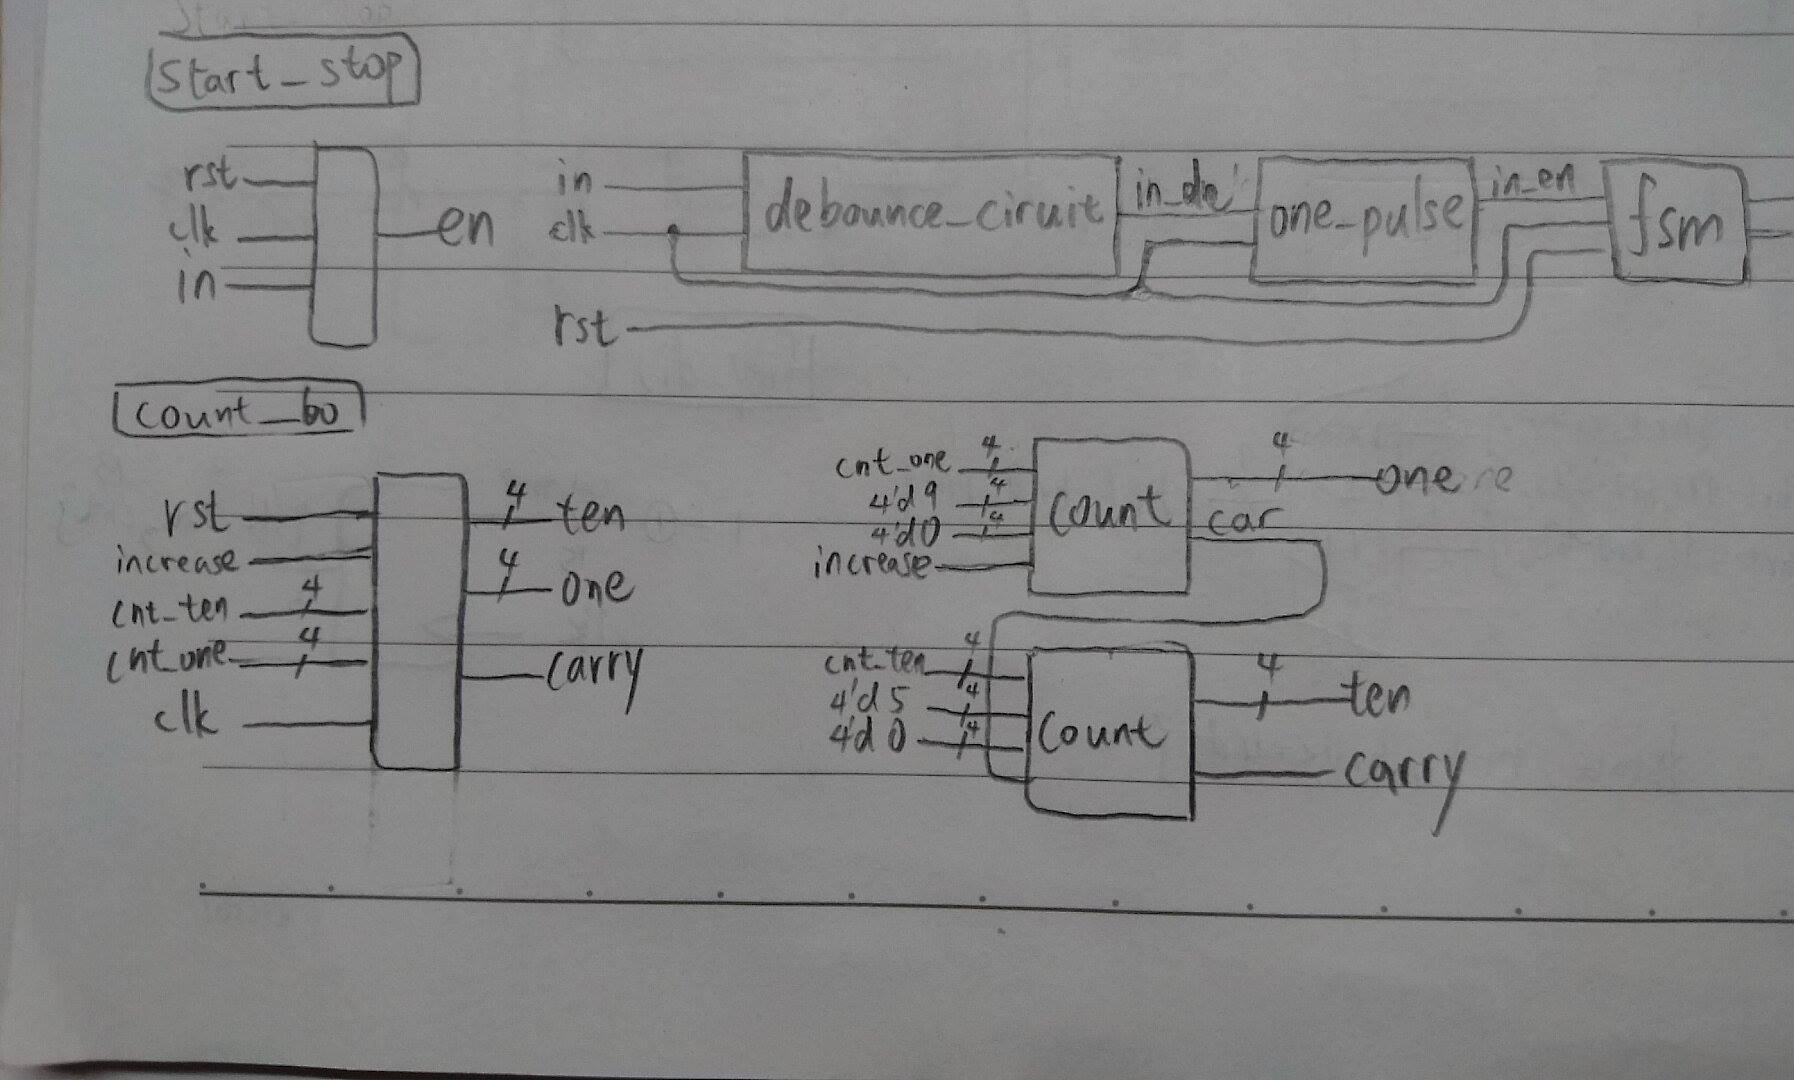 Start_stop
rst
clk
in
en
in
clk
rst
debounce_ciruit
in_de
one_pulse
in_en
fsm
count_60
rst
increase
cnt_ten 4
cnt_one 4
clk
4 ten
4 one
carry
cnt_one 4
4'd9 4
4'd0 4
increase
count
4 one
car
cnt_ten 4
4'd5 4
4'd0 4
count
4 ten
carry